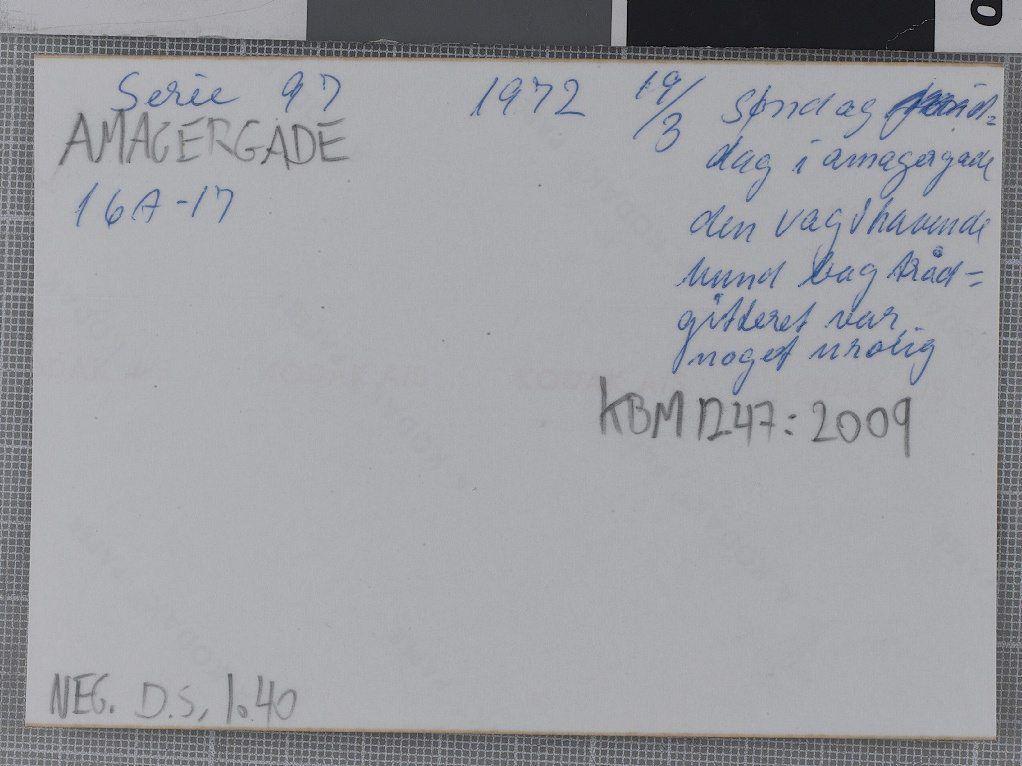 Serie 97
AMAGERGADE
16A-17
1972 19/3
Søndag
dag i amagergade
den vagthavende
hund bag tråd=
gitteret var
noget urolig
KBM1247:2009
NEG. D.S, 1.40